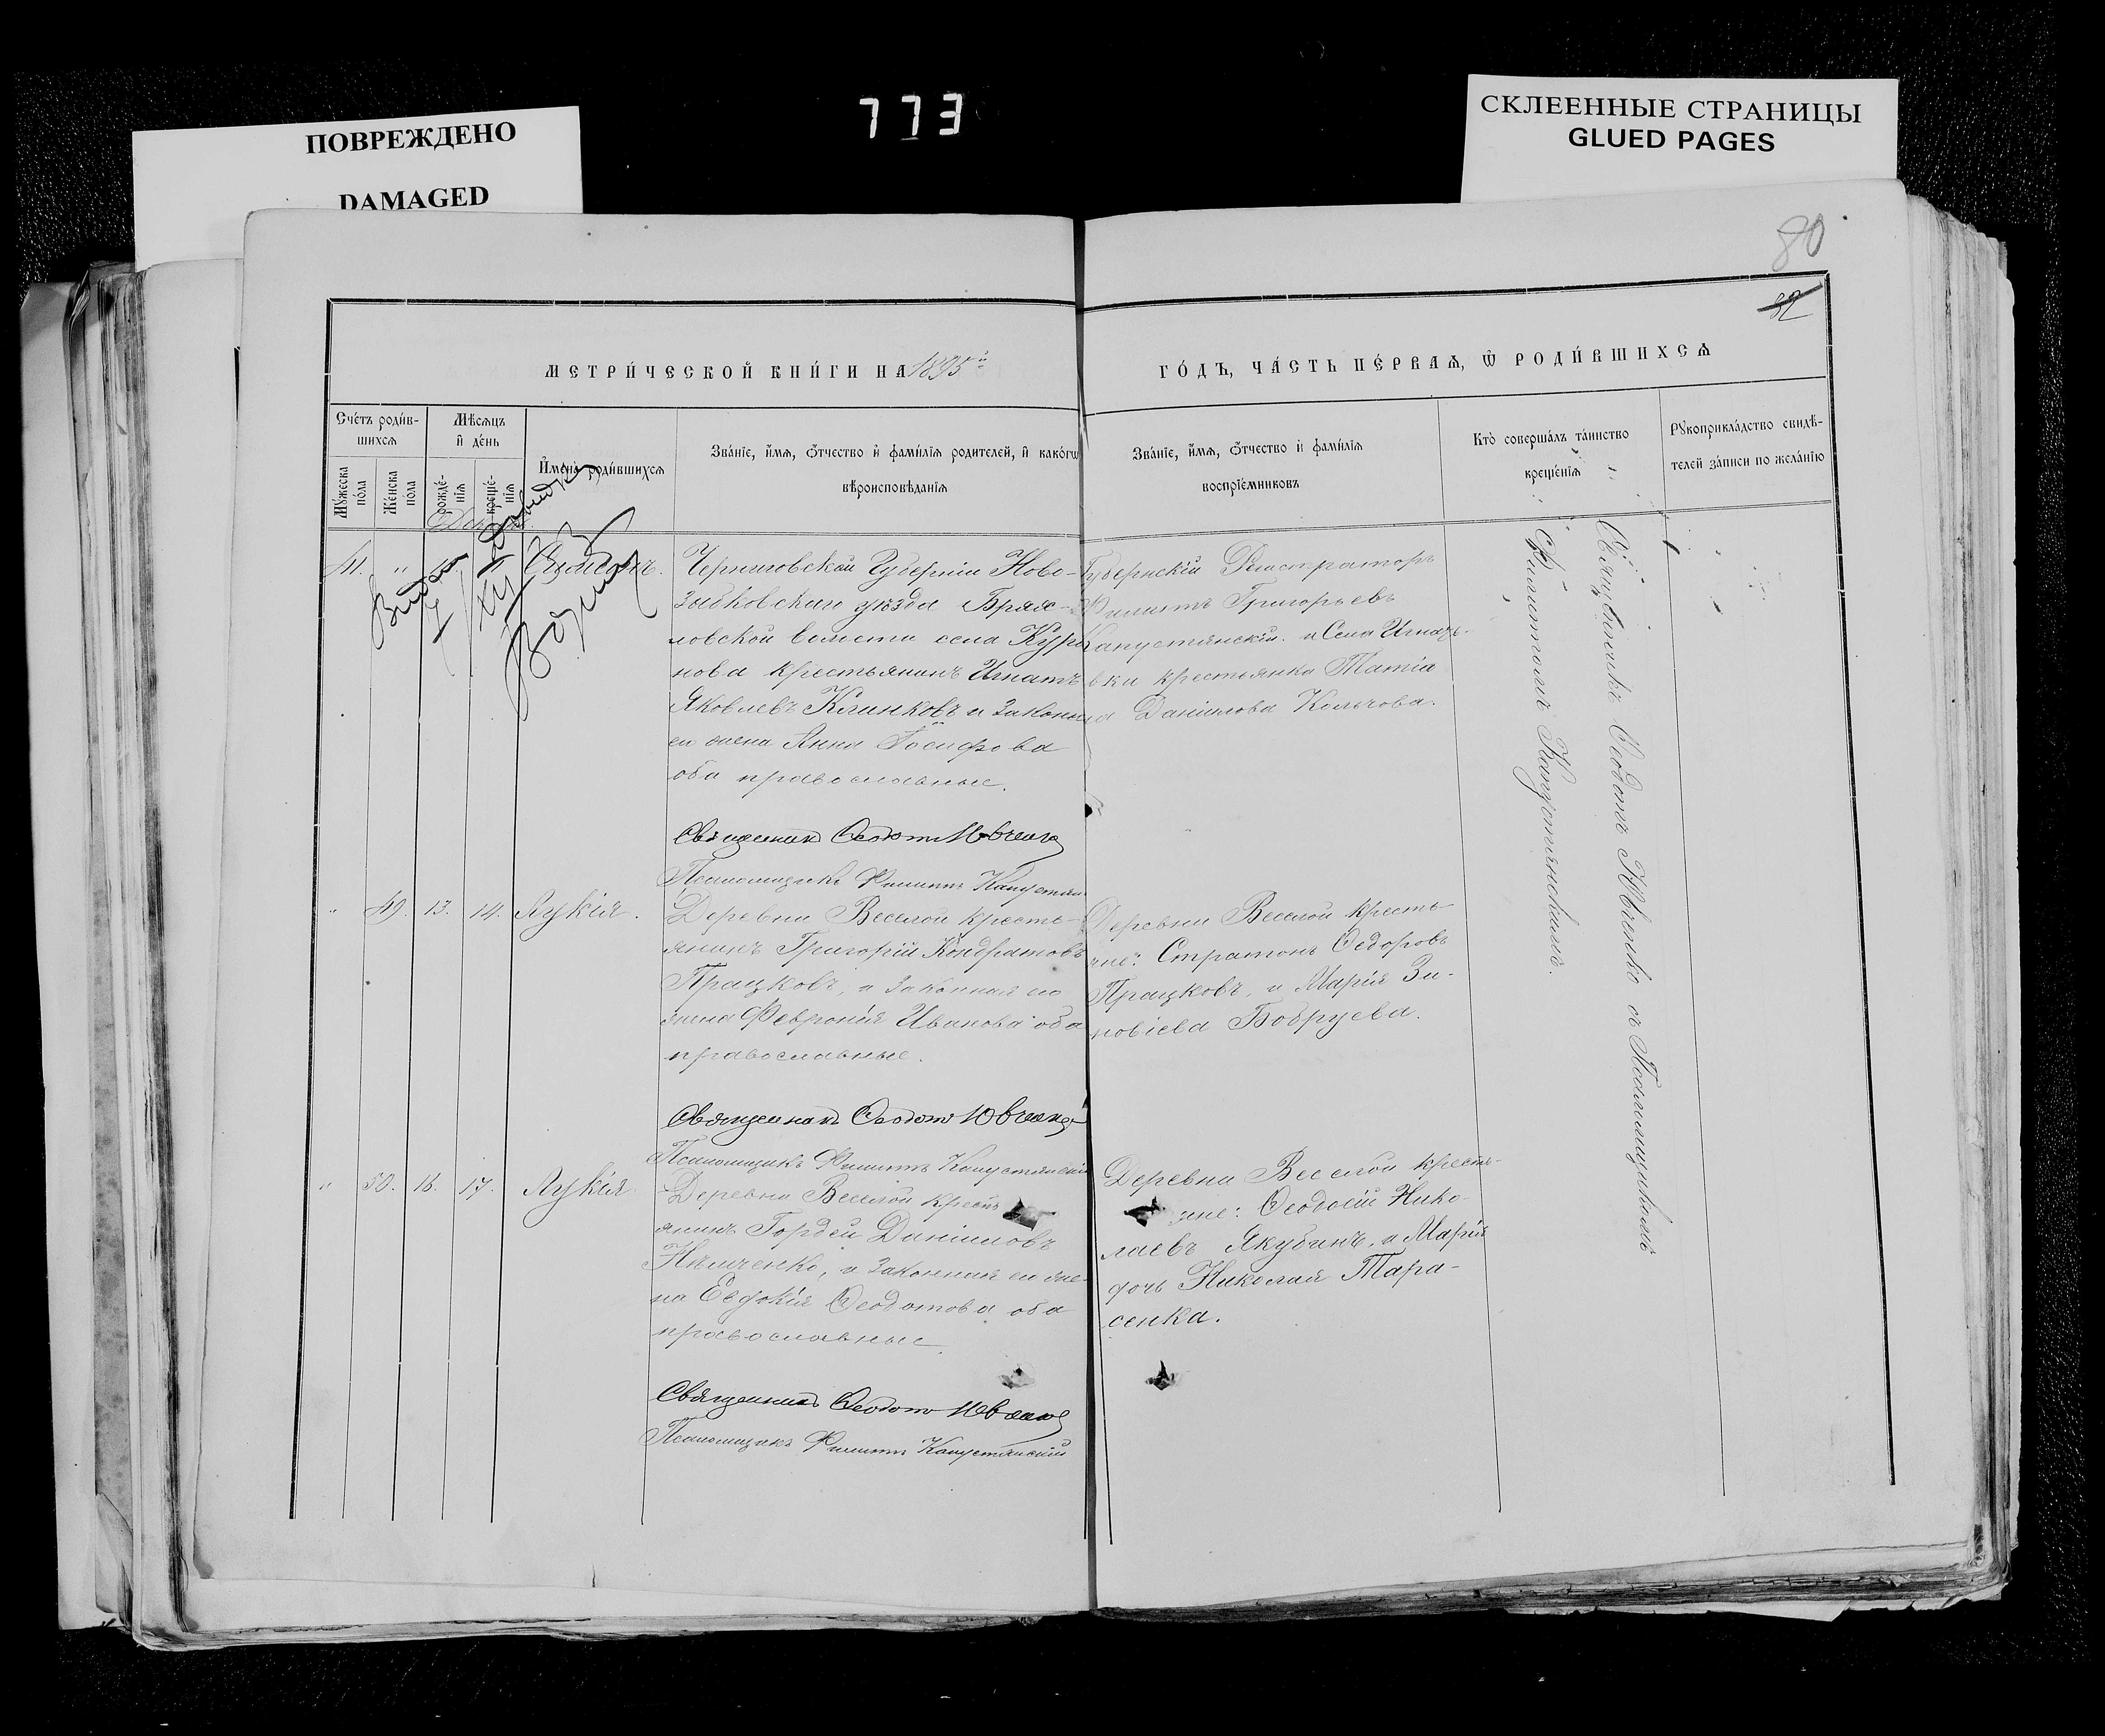 773
ПОВРЕЖДЕНО
DAMAGED
СКЛЕЕННЫЕ СТРАНИЦЫ
GLUED PAGES
80
82
МЕТРИ́ЧЕСКОЙ КНИ́ГИ НА 1895й
ГО́ДЪ, ЧА́СТЬ ПЕ́РВАѦ, Ѿ РОДИ́ВШИХСѦ
Сче́тъ роди́в-
шихсѧ
Мꙋ́жеска по́ла
Же́нска по́ла
Мѣ́сѧцъ
и҆ де́нь
рожде́-
нїѧ
креще́-
нїѧ
И҆мена̀ роди́вшихсѧ
Зва́нїе, и҆́мѧ, ѻ҆́тчество и҆ фами́лїѧ роди́телей, и҆ како́гѡ
вѣроисповѣ́данїѧ
Зва́нїе, и҆́мѧ, ѻ҆́тчество и҆ фами́лїѧ
воспрїе́мниковъ
Кто̀ соверша́лъ та́инство
креще́нїѧ
Рꙋкоприкла́дство свидѣ́-
телей за́писи по жела́нїю
41. " Симеонъ.
Черниговской Губерніи Ново-
зыбковскаго уѣзда Бряс-
ловской волости села Курк
нова крестьянинъ Игнатъ
Яковлевъ Клинковъ и законн
его жена Анна Іосифова
оба православные.
Священникъ Ѳеодотъ Ювченко
Псаломщикъ Филиппъ Капустян
Губернскій Регистраторъ
Филиппъ Григорьевъ
Капустянскій. и Села Игнать-
вки крестьянка Татіа
на Даніилова Кольчова.
" 49. 13. 14. Лукія.
Деревни Веселой кресть-
янинъ Григорій Кондратовъ
Працковъ, и законная его
жена Февронія Иванова оба
православные.
Священникъ Ѳеодотъ Ювченко
Псаломщикъ Филиппъ Капустянскій
Деревни Веселой кресть-
яне: Стратонъ Ѳедоровъ
Працковъ, и Марія Зи-
новіева Бобруева.
" 50. 16. 17. Лукія
Деревни Веселой крест
янинъ Гордей Даніиловъ
Нѣмченко, и законная его же-
на Евдокія Ѳеодотова оба
православные
Священникъ Ѳеодотъ Ювченко
Псаломщикъ Филиппъ Капустянскій
Деревни Веселой кресть-
яне: Ѳеодосій Нико-
лаевъ Якубинъ, и Марія
дочь Николая Тара-
сенка.
Священникъ Ѳеодотъ Ювченко съ Псаломщикомъ
Филиппомъ Капустянскимъ.